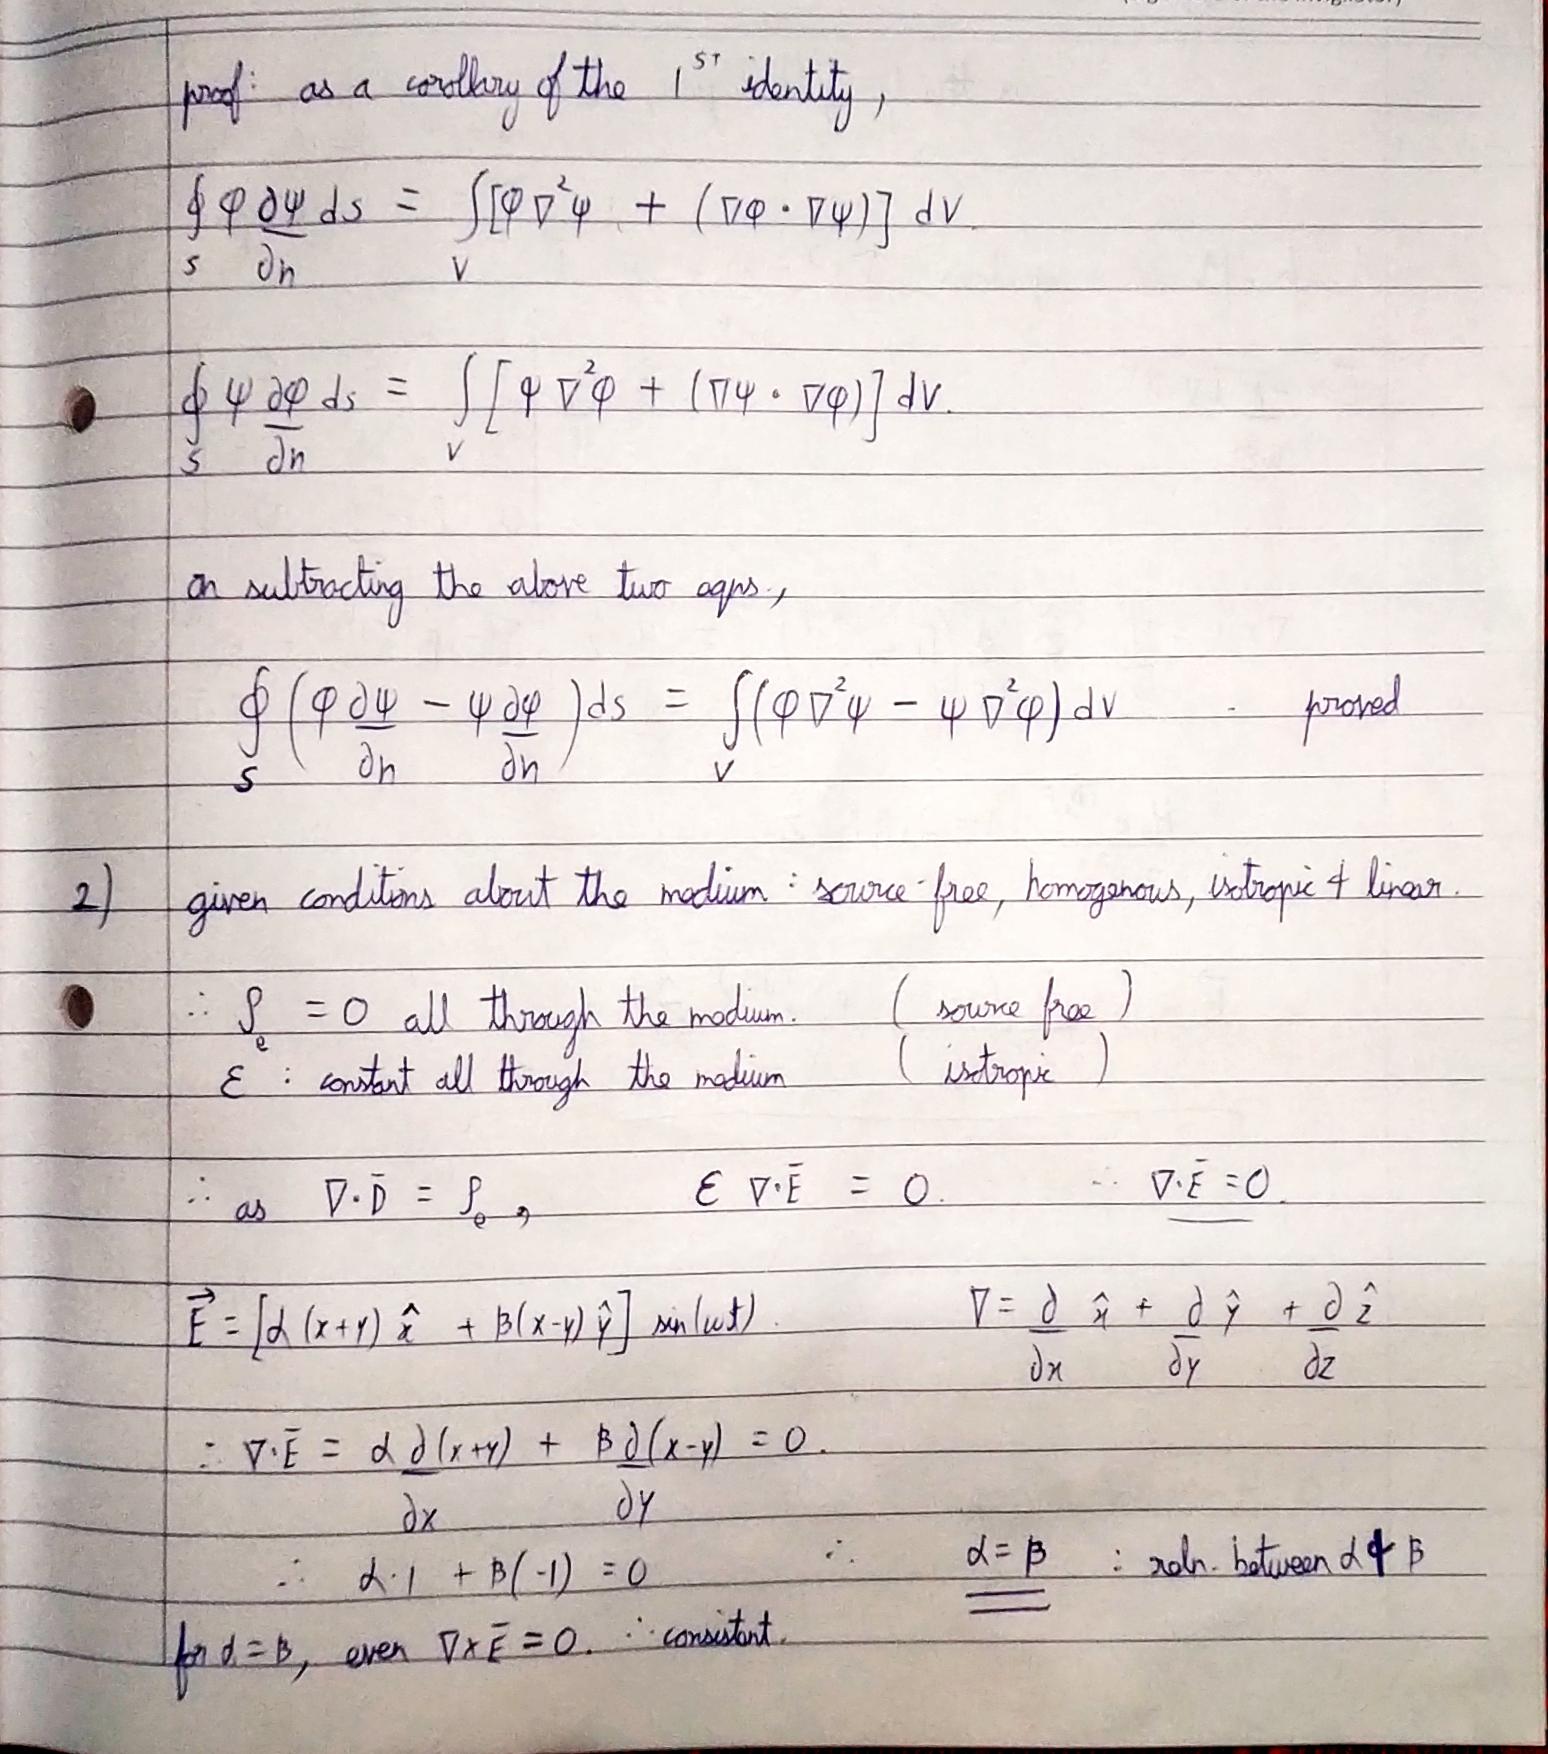 proof: as a corollary of the 1ST identity,
∮_S φ ∂ψ/∂n ds = ∫_V [φ∇²ψ + (∇φ · ∇ψ)] dV.
∮_S ψ ∂φ/∂n ds = ∫_V [ψ∇²φ + (∇ψ · ∇φ)] dV.
on subtracting the above two eqns.,
∮_S (φ ∂ψ/∂n - ψ ∂φ/∂n) ds = ∫_V (φ∇²ψ - ψ∇²φ) dV proved
2) given conditions about the medium : source-free, homogenous, isotropic & linear.
∴ ρ_e = 0 all through the medium. (source free)
ε : constant all through the medium (isotropic)
∴ as ∇·D̄ = ρ_e, ε ∇·Ē = 0. ∴ ∇·Ē = 0.
E⃗ = [α(x+y) x̂ + β(x-y) ŷ] sin(ωt). ∇ = ∂/∂x x̂ + ∂/∂y ŷ + ∂/∂z ẑ
∴ ∇·Ē = α ∂/∂x (x+y) + β ∂/∂y (x-y) = 0.
∴ α·1 + β(-1) = 0 ∴ α = β : reln. between α & β
for α = β, even ∇×Ē = 0. ∴ consistent.